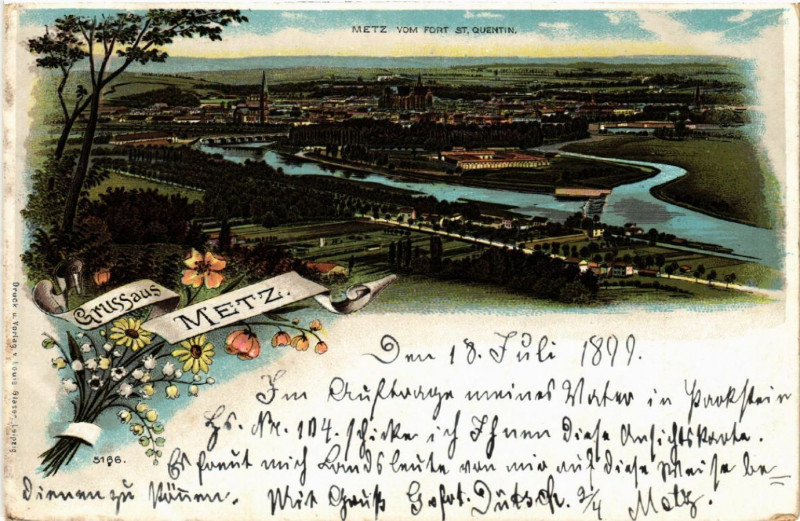 METZ VOM FORT ST. QUENTIN.
Gruss aus
METZ.
Druck u. Verlag v. Louis Glaser, Leipzig.
5166.
Den 18. Juli 1899.
Im Auftrage meines Vater in Parkstein
Hs. Nr. 104. schicke ich Ihnen diese Ansichtskarte.
Es freut mich Landsleute von mir auf diese Weise be-
dienen zu können. Mit Gruß Gefrt. Dütsch. 2/4 Metz.